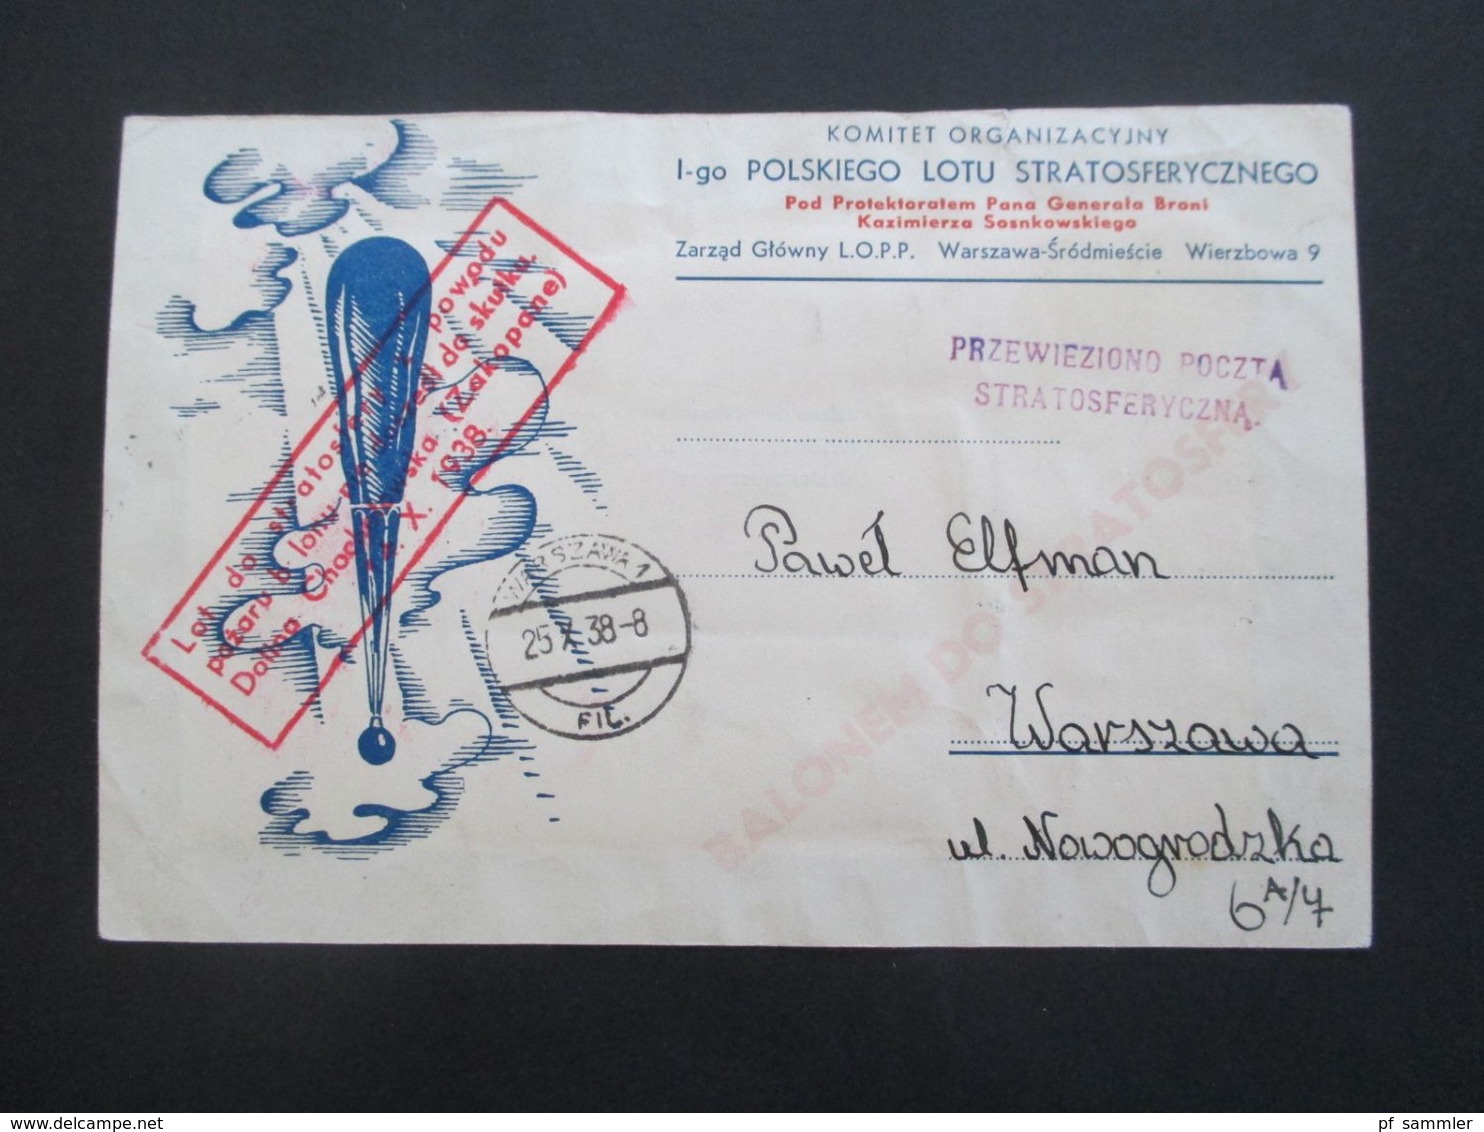 KOMITET ORGANIZACYJNY
I-go POLSKIEGO LOTU STRATOSFERYCZNEGO
Pod Protektoratem Pana Generała Broni
Kazimierza Sosnkowskiego
Zarząd Główny L.O.P.P. Warszawa-Śródmieście Wierzbowa 9
PRZEWIEZIONO POCZTĄ
STRATOSFERYCZNĄ.
BALONEM DO STRATOSFERY
Lot do stratosfery z powodu
pożaru balonu nie doszedł do skutku.
Dolina Chochołowska (Zakopane)
X. 1938.
WARSZAWA 1
25 X 38-8
FIL.
Paweł Elfman
Warszawa
ul. Nowogrodzka
6A/7
delcampe.net
pf_sammler